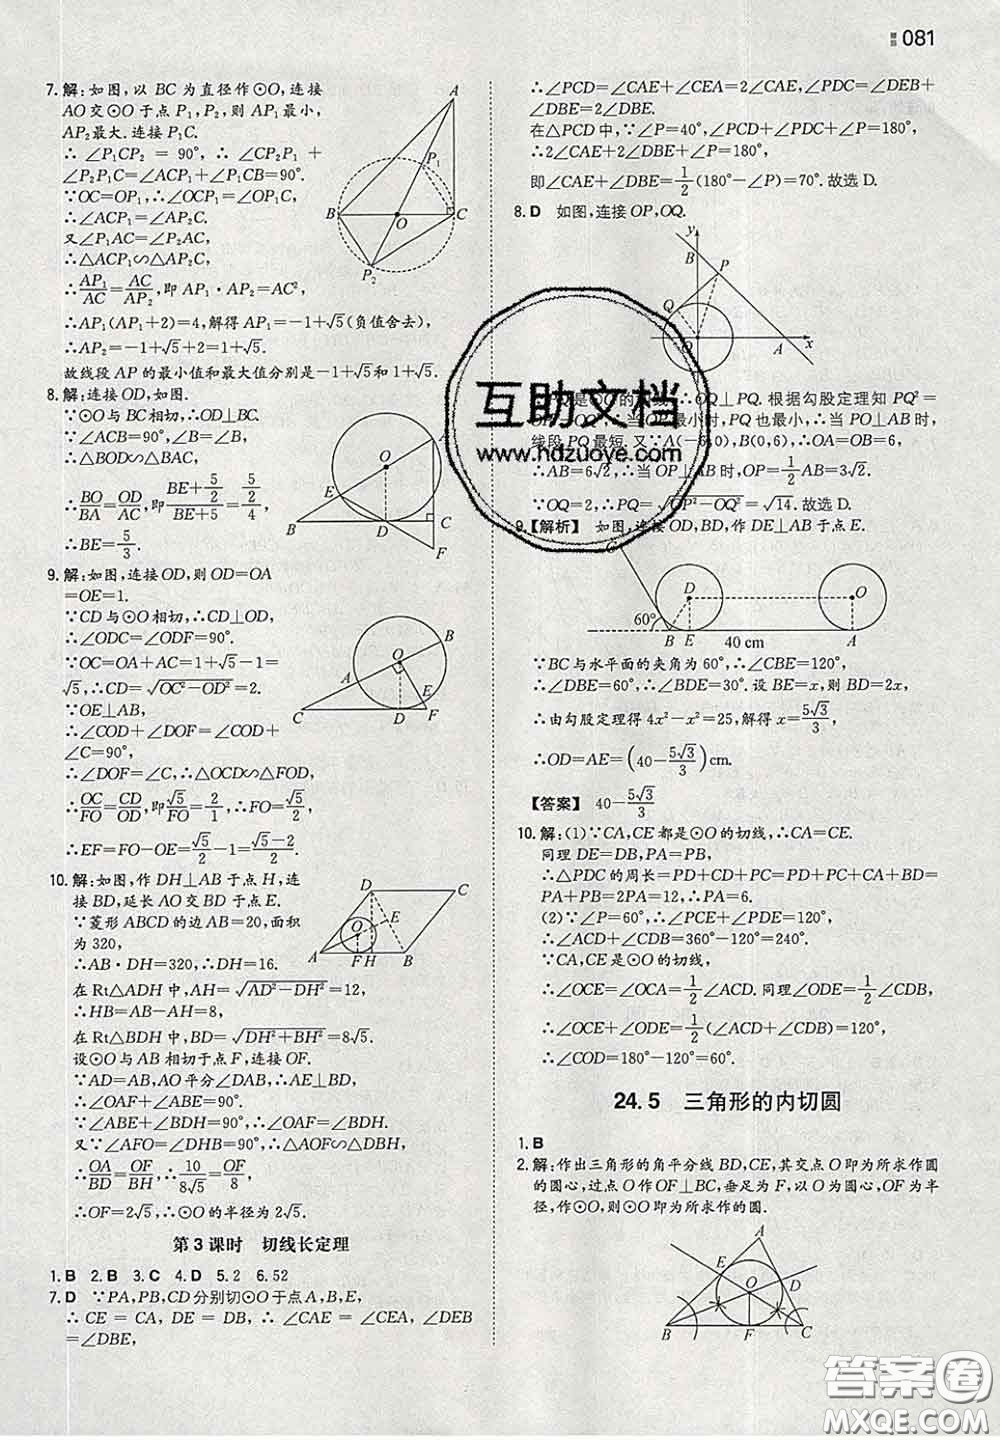 081
7.解:如图,以 BC 为直径作⊙O,连接
AO交⊙O于点P₁,P₂,则 AP₁最小,
AP₂最大.连接P₁C.
∴∠P₁CP₂=90°,∴∠CP₂P₁+
∠P₂P₁C=∠ACP₁+∠P₁CB=90°.
∵OC=OP₁,∴∠OCP₁=∠OP₁C.
∴∠ACP₁=∠AP₂C.
又∠P₁AC=∠P₂AC,
∴△ACP₁∽△AP₂C,
∴AP₁/AC=AC/AP₂,即AP₁·AP₂=AC²,
∴AP₁(AP₁+2)=4,解得AP₁=-1+√5(负值舍去),
∴AP₂=-1+√5+2=1+√5.
故线段AP的最小值和最大值分别是-1+√5和1+√5.
8.解:连接OD,如图.
∵⊙O与BC相切,∴OD⊥BC.
∵∠ACB=90°,∴OD∥AC,
∴△BOD∽△BAC,
∴BO/BA=OD/AC,即(BE+5/2)/(BE+5)=(5/2)/4,
∴BE=5/3.
9.解:如图,连接OD,则OD=OA
=OE=1.
∵CD与⊙O相切,∴CD⊥OD,
∴∠ODC=∠ODF=90°.
∵OC=OA+AC=1+√5-1=
√5,∴CD=√(OC²-OD²)=2.
∵OE⊥AB,
∴∠COD+∠DOF=∠COD+
∠C=90°,
∴∠DOF=∠C,∴△OCD∽△FOD,
∴OC/FO=CD/OD,即√5/FO=2/1,∴FO=√5/2,
∴EF=FO-OE=√5/2-1=(√5-2)/2.
10.解:如图,作DH⊥AB于点H,连
接BD,延长AO交BD于点E.
∵菱形ABCD的边AB=20,面积
为320,
∴AB·DH=320,∴DH=16.
在Rt△ADH中,AH=√(AD²-DH²)=12,
∴HB=AB-AH=8,
在Rt△BDH中,BD=√(DH²+BH²)=8√5.
设⊙O与AB相切于点F,连接OF.
∵AD=AB,AO平分∠DAB,∴AE⊥BD,
∴∠OAF+∠ABE=90°.
∵∠ABE+∠BDH=90°,∴∠OAF=∠BDH.
又∵∠AFO=∠DHB=90°,∴△AOF∽△DBH,
∴OA/BD=OF/BH,∴10/8√5=OF/8,
∴OF=2√5,∴⊙O的半径为2√5.
第3课时 切线长定理
1.B 2.B 3.C 4.D 5.2 6.52
7.D ∵PA,PB,CD分别切⊙O于点A,B,E,
∴CE=CA,DE=DB,∴∠CAE=∠CEA,∠DEB
=∠DBE,
∴∠PCD=∠CAE+∠CEA=2∠CAE,∠PDC=∠DEB+
∠DBE=2∠DBE.
在△PCD中,∵∠P=40°,∠PCD+∠PDC+∠P=180°,
∴2∠CAE+2∠DBE+∠P=180°,
即∠CAE+∠DBE=1/2(180°-∠P)=70°.故选D.
8.D 如图,连接OP,OQ.
∴OQ⊥PQ.根据勾股定理知PQ²=
∴当PO⊥AB时,
线段PQ最短.又∵A(-6,0),B(0,6),∴OA=OB=6,
∴AB=6√2,∴当OP⊥AB时,OP=1/2AB=3√2.
∵OQ=2,∴PQ=√(OP²-OQ²)=√14.故选D.
9.【解析】 如图,连接OD,BD,作DE⊥AB于点E.
∵BC与水平面的夹角为60°,∴∠CBE=120°,
∴∠DBE=60°,∴∠BDE=30°.设BE=x,则BD=2x,
∴由勾股定理得4x²-x²=25,解得x=5√3/3,
∴OD=AE=(40-5√3/3)cm.
【答案】 40-5√3/3
10.解:(1)∵CA,CE都是⊙O的切线,∴CA=CE.
同理DE=DB,PA=PB,
∴△PDC的周长=PD+CD+PC=PD+PC+CA+BD=
PA+PB=2PA=12,∴PA=6.
(2)∵∠P=60°,∴∠PCE+∠PDE=120°,
∴∠ACD+∠CDB=360°-120°=240°.
∵CA,CE是⊙O的切线,
∴∠OCE=∠OCA=1/2∠ACD.同理∠ODE=1/2∠CDB,
∴∠OCE+∠ODE=1/2(∠ACD+∠CDB)=120°,
∴∠COD=180°-120°=60°.
24.5 三角形的内切圆
1.B
2.解:作出三角形的角平分线BD,CE,其交点O即为所求作圆
的圆心,过点O作OF⊥BC,垂足为F,以O为圆心,OF为半
径,作⊙O,⊙O即为所求作的圆.
互助文档
www.hdzuoye.com
答案圈
MXQE.COM